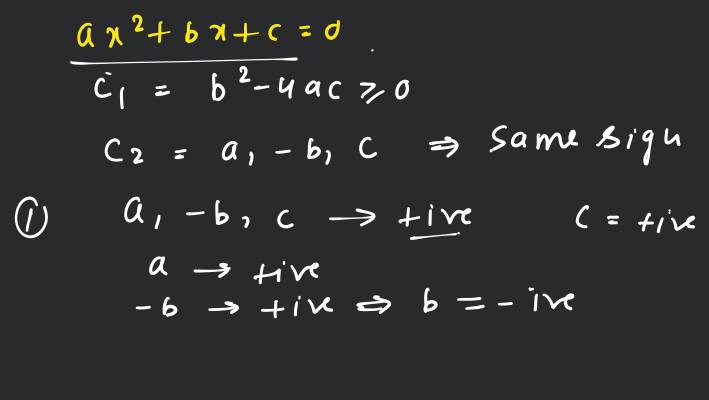 ax²+bx+c=0
C₁ = b²-4ac ⩾ 0
C₂ = a, -b, c ⇒ Same sign
① a, -b, c → +ive C = +ive
a → +ive
-b → +ive ⇔ b = -ive